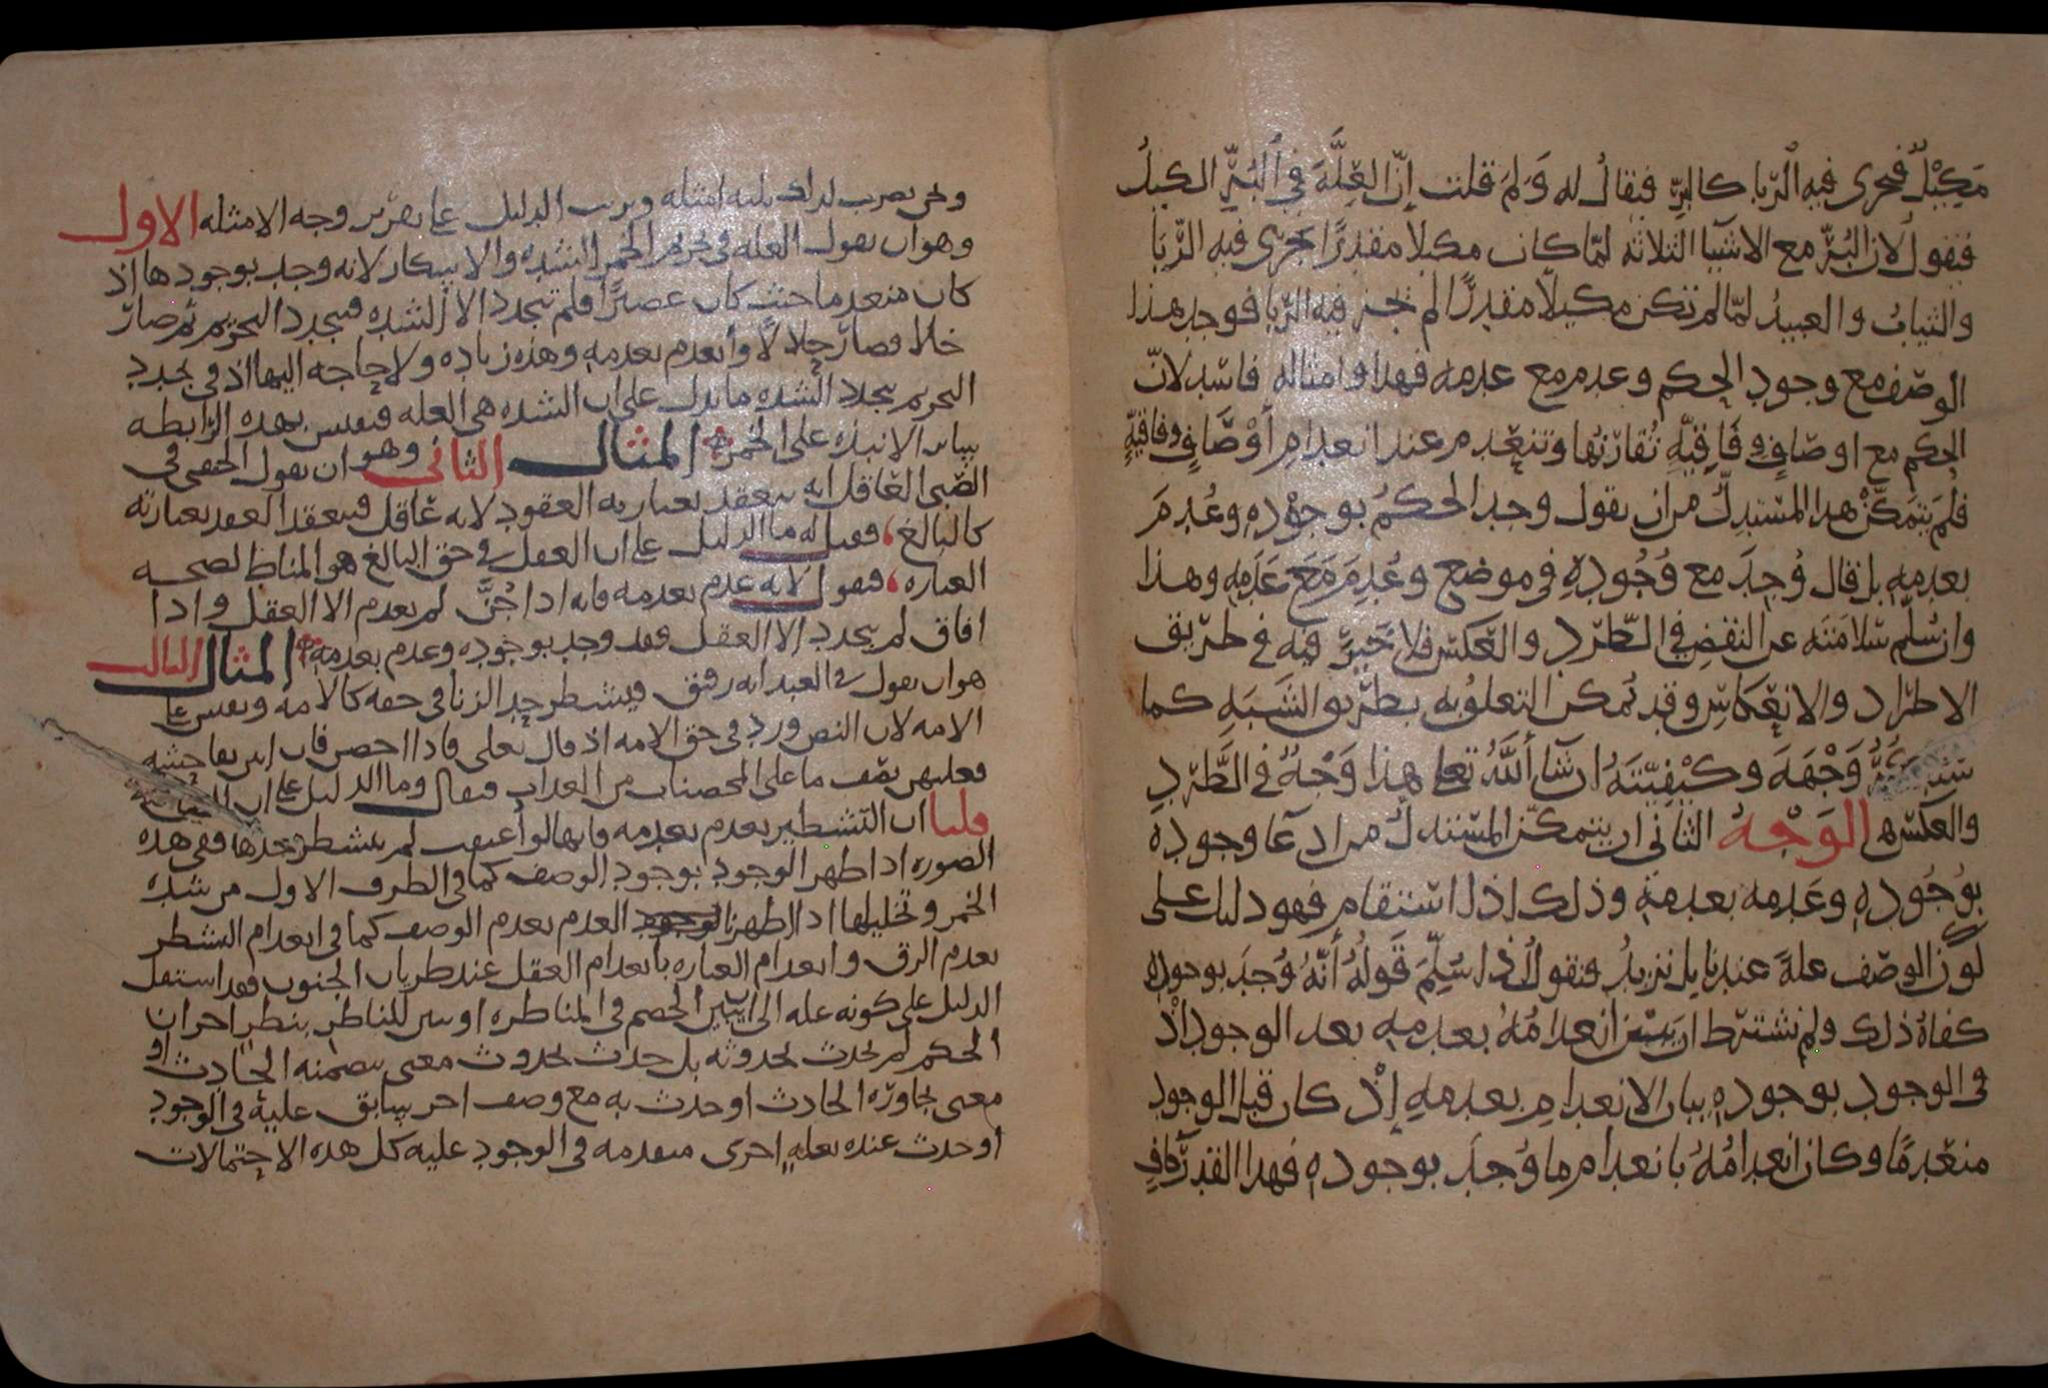 مَكِيْلٌ فجرى فيه الرّبا كالبرّ فيقال له وَلمَ قلت إنّ العِلَّة في البُرّ الكيلُ
فيقول لان البُرّ مع الاشيا الثلاثه لمّا كان مكيلا مقدرًا جرى فيه الرّبَا
والثيابُ والعبيدُ لمّا لم تكن مكيلًا مقدرًا لم يجر فيه الرّبا فوجد هذا
الوصف مع وجود الحكم وعدم مع عدمه فهذا وامثاله فاسد لانّ
الحكم مع اوصافٍ وفَاقيّهٍ تُقارنها وتنعدم عند انعدام أوصَافٍ وفاقيّهٍ
فلَم يتمكّن هذا المستدلّ من ان يقول وجد الحكمُ بوجوْدهِ وعُدِمَ
بعدمهِ بل قال وُجدَ مع وُجُودهِ في موضع وعُدِمَ مَعَ عَدَمِهِ وهذا
وان سُلّم سَلامَته عن النقض في الطّرد والعكس فلا خَيرَ فيه في طريق
الاطراد والانعكاسِ وقد يُمكن التعلق به بطريق الشبَهِ كما
وَجْهَهَ وكيْفِيّتَهُ ان شآ اللّهُ تعلى هذا وَجْهٌ في الطَّرْدِ
والعكسِ الوَجْهُ الثاني ان يتمكّن المستدلُ من ادعآ وجوده
بوُجُودهِ وعَدمه بعدمهِ وذلك إذا استقام فهو دليل على
كَوْن الوصف علةً عندنا بل نزيدُ ونقول إذا سُلّمَ قَولُهُ أنّهُ وُجدَ بوجودهِ
كفاهُ ذلك ولم نشترط ان يبين انعدامُهُ بعدمهِ بعد الوجود اذْ
في الوجود بوجودهِ بيان الانعدامِ بعدمهِ إذْ كان قبل الوجود
منعدمًا وكان انعدامُهُ بانعدام ما وُجدَ بوجودهِ فهذا القدرُ كافٍ
ونحن نضرب لذلك ثلثه امثله ونرتب الدليل على تقرير وجه الامثله الاول
وهو ان نقول العله في تحريم الخمر الشده والاسكار لانه وجد بوجودها اذ
كان منعدما حيث كان عصيرًا فلم تتجدد الا الشده فتجدد التحريم ثم صار
خلا فصار حلالًا وأنعدم بعدمهِ وهذه زياده ولا حاجه اليها اذ في تجدد
التحريم بتجدد الشده ما يدل على ان الشده هي العله فنقيس بهذه الرابطه
سائر الانبذه على الخمر المثال الثاني وهو ان يقول الحنفي في
الصّبي العاقل انه ينعقد بعبارته العقود لانه عاقل فينعقد العقد بعبارته
كالبالغ فقيل له ما الدليل على ان العقل في حق البالغ هو المناط لصحه
العباره فيقول لانه عدم بعدمه فانه اذا جُنَّ لم يعدم الا العقل واذا
افاق لم يتجدد الا العقل فقد وجد بوجوده وعدم بعدمهِ المثال الثالث
هو ان نقول في العبد انه رقيق فيتشطر حد الزنا في حقه كالامه ونقيس على
الامه لان النص ورد في حق الامه اذ قال تعلى فاذا احصن فان اتين بفاحشه
فعليهن نصف ما على المحصنات من العذاب فيقال وما الدليل على ان
قلنا ان التشطير يعدم بعدمه فانها لو أعتقت لم يتشطر حدها ففي هذه
الصوره اذا ظهر الوجود بوجود الوصف كما في الطرف الاول من شده
الخمر وتخليلها اذا ظهر العدم بعدم الوصف كما في انعدام التشطر
بعدم الرق وانعدام العباره بانعدام العقل عند طريان الجنون فقد استقل
الدليل على كونه عله الى ان يبين الخصم في المناظره او يتبين للناظر بنظرٍ اخر ان
الحكم لم يحدث بحدوثه بل حدث بحدوث معنى يتضمنه الحادث او
معنى يجاوره الحادث او حدث به مع وصف اخر سابق عليه في الوجود
أو حدث عنده بعلهٍ احرى متقدمه في الوجود عليه كل هذه الاحتمالات